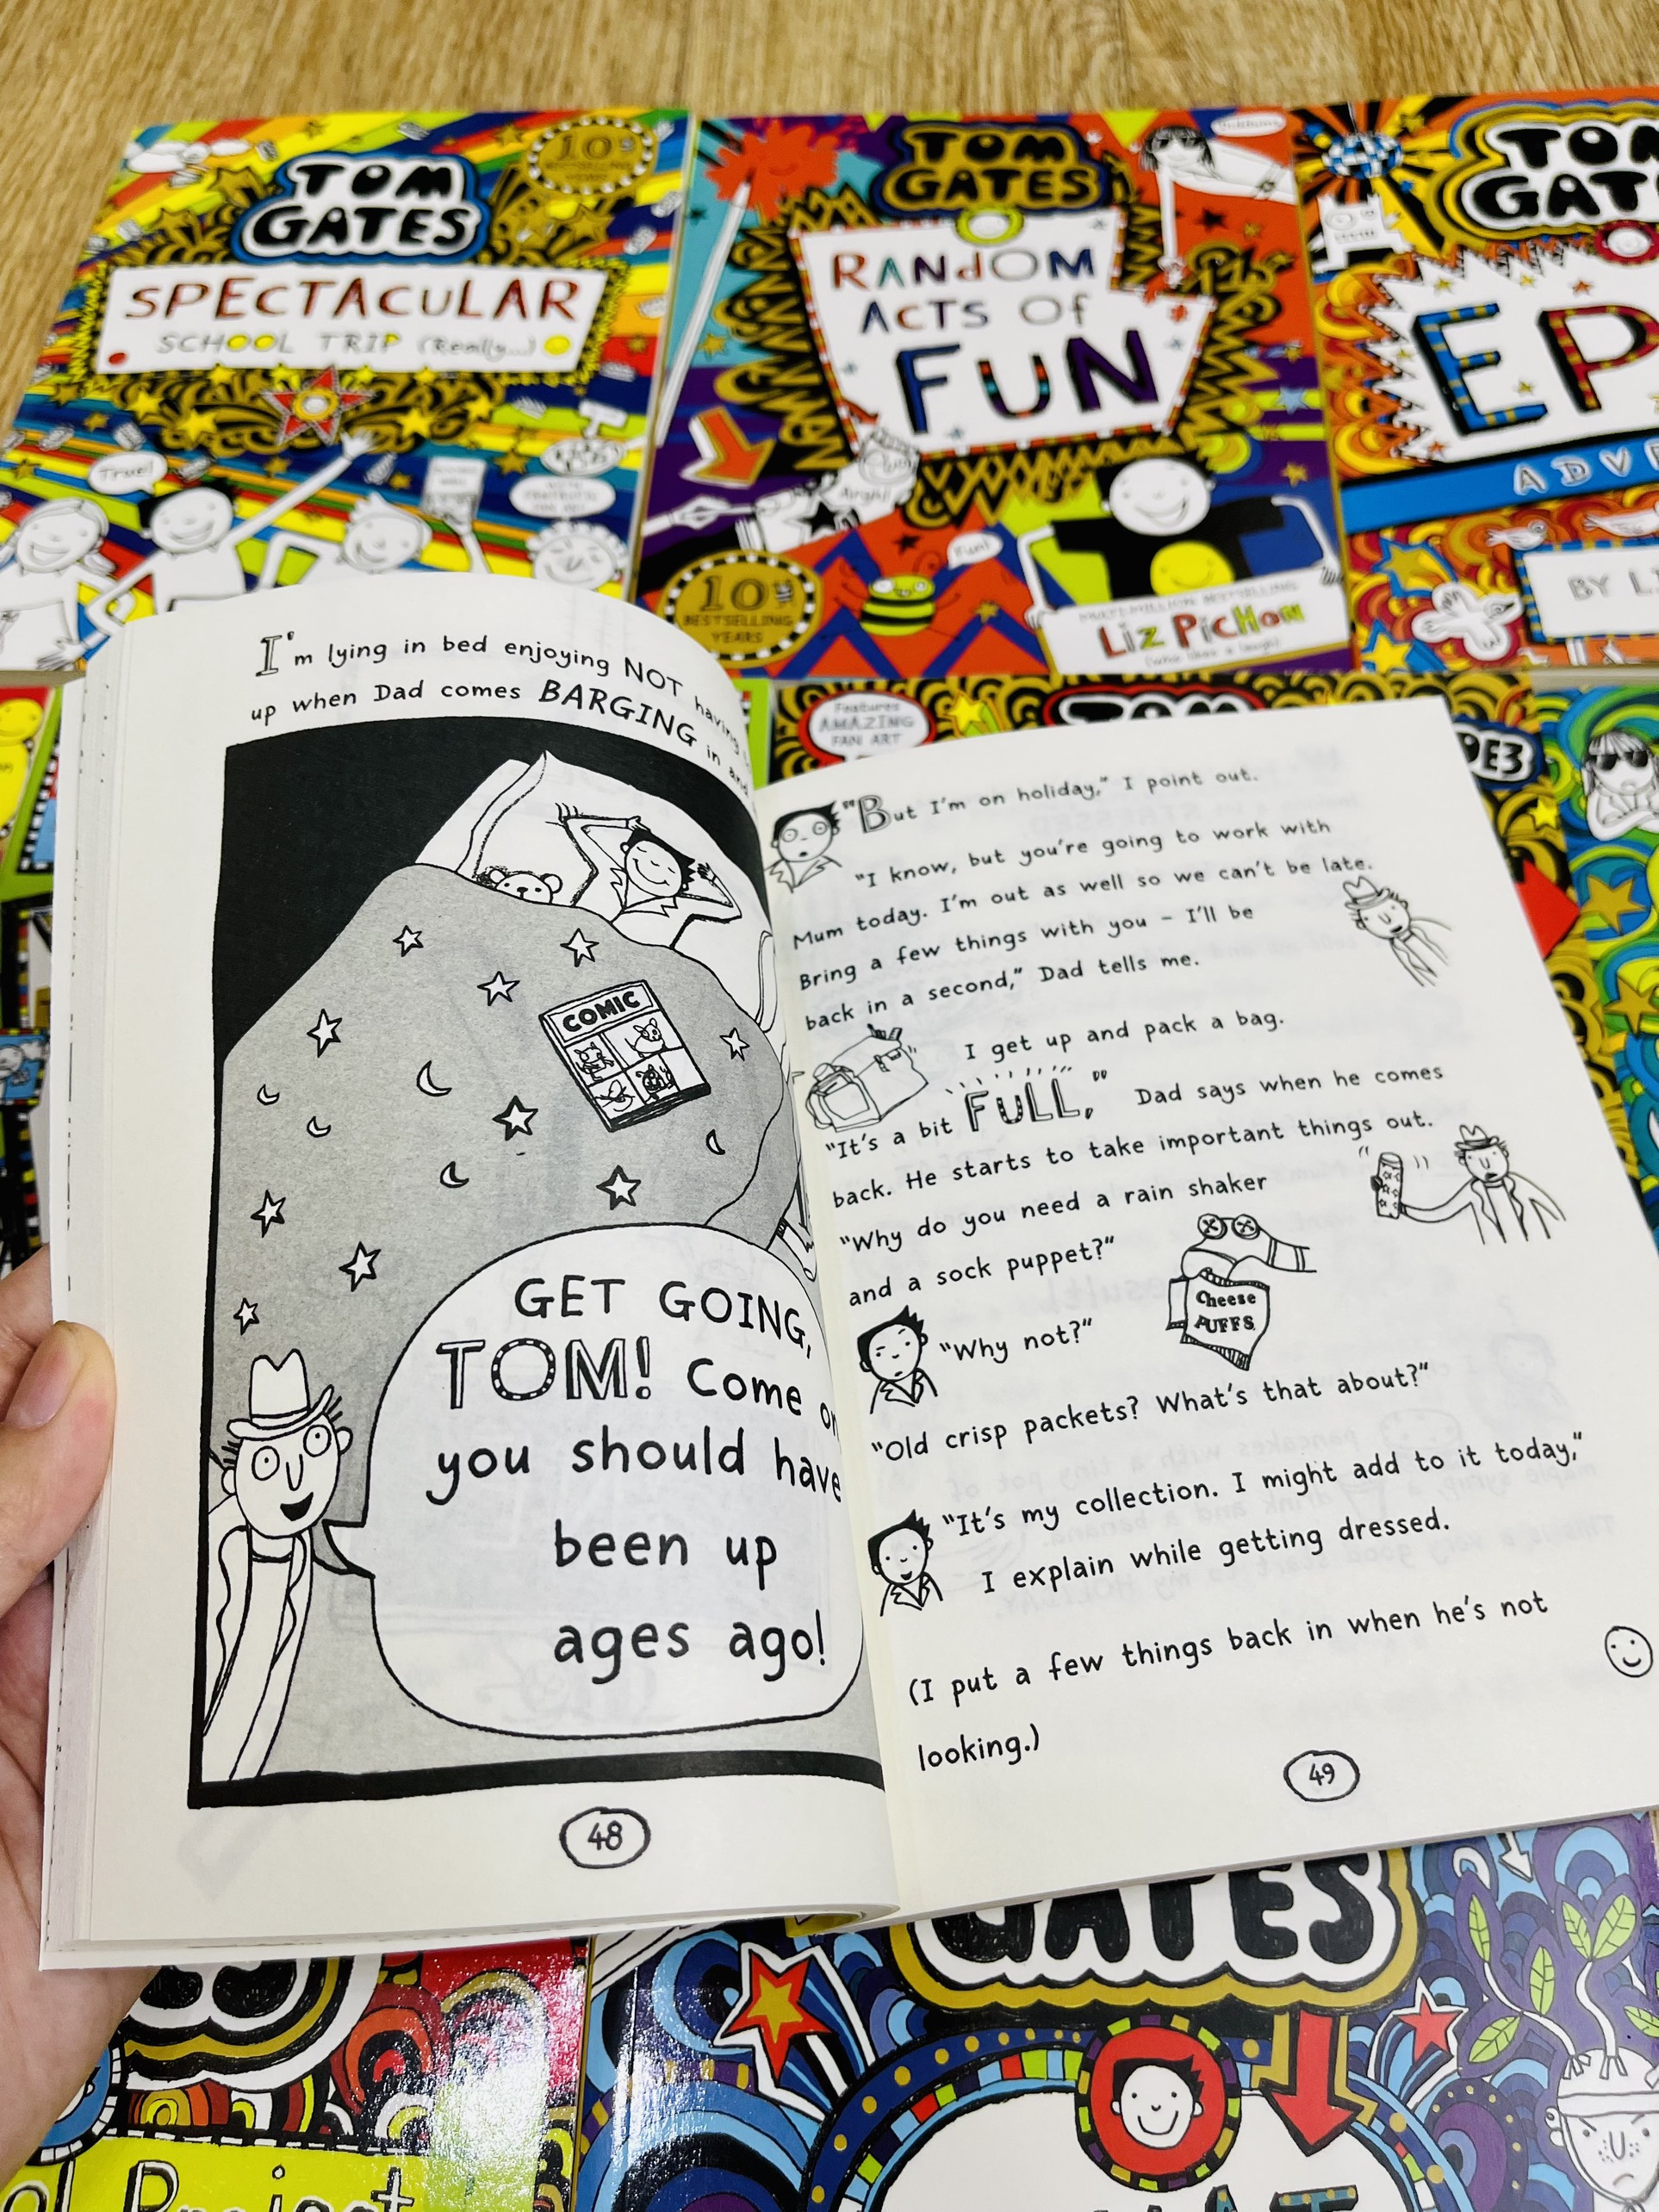 10
TOM
GATES
SPECTACULAR
SCHOOL TRIP (Really...)
True!
TOM
GATES
RANdOM
ACTS OF
FUN
Fun!
10
BESTSELLING
YEARS
MULTI-MILLION BESTSELLING
Liz PicHon
(who likes a laugh)
EP
BY L
Features
AMAZING
FAN ART
I'm lying in bed enjoying NOT having
up when Dad comes BARGING in and
COMIC
GET GOING,
TOM! Come on
you should have
been up
ages ago!
48
"But I'm on holiday," I point out.
"I know, but you're going to work with
Mum today. I'm out as well so we can't be late.
Bring a few things with you – I'll be
back in a second," Dad tells me.
I get up and pack a bag.
"It's a bit FULL," Dad says when he comes
back. He starts to take important things out.
"Why do you need a rain shaker
and a sock puppet?"
Cheese
PUFFS
"Why not?"
"Old crisp packets? What's that about?"
"It's my collection. I might add to it today,"
I explain while getting dressed.
(I put a few things back in when he's not
looking.)
49
GATES
Project